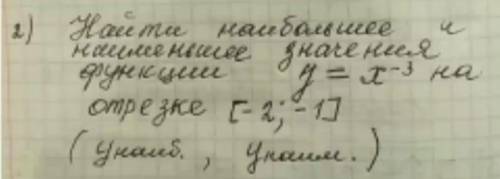 2) Найти наибольшее и
наименьшее значения
функции y = x⁻³ на
отрезке [-2; -1]
(yнаиб., yнаим.)